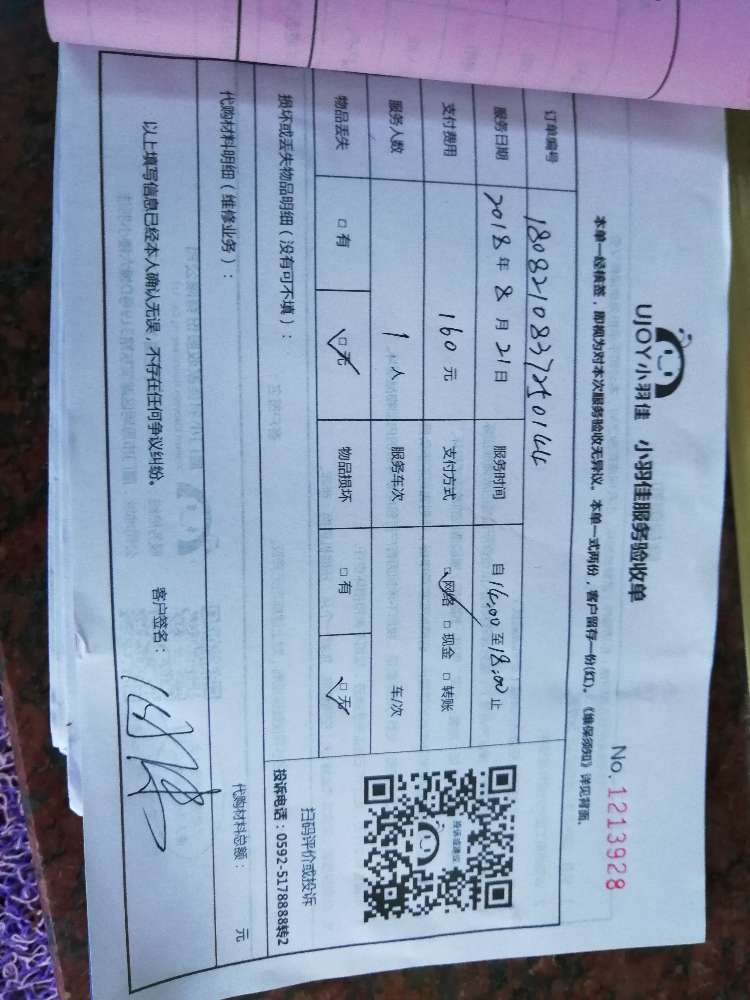 UJOY小羽佳 小羽佳服务验收单
No. 1213928
本单一经核签，即视为对本次服务验收无异议。本单一式两份，客户留存一份(红)。《维保须知》详见背面。
订单编号 1808210837250144
服务日期 2018年8月21日 服务时间 自14:00至18:00止
支付费用 160元 支付方式 ☑网络 □现金 □转账
服务人数 1人 服务车次 车/次
物品丢失 □有 ☑无 物品损坏 □有 ☑无
投诉或建议
扫码评价或投诉
投诉电话：0592-5178888转2
损坏或丢失物品明细（没有可不填）：
代购材料明细（维修业务）： 代购材料总额： 元
以上填写信息已经本人确认无误，不存在任何争议纠纷。 客户签名：